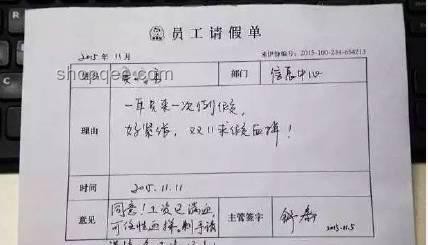 员工请假单
2015年11月
来伊份编号：2015-100-234-654213
部门
信息中心
一年负来一次例假，
好紧张，双11求假血拼！
理由
时间
2015.11.11
意见
同意！工资已满血，
可任性血拼，剁手请
主管签字
2015.11.5